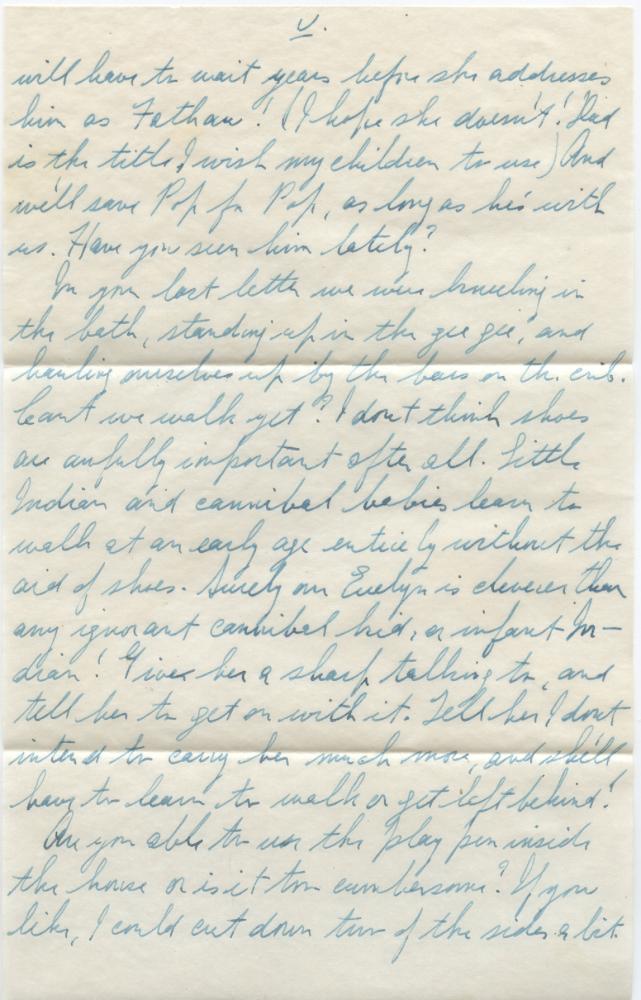 V.
will have to wait years before she addresses
him as Fathaw! (I hope she doesn't! Dad
is the title I wish my children to use) And
we'll save Pop for Pop, as long as he's with
us. Have you seen him lately?
In your last letter we were kneeling in
the bath, standing up in the gee gee, and
hauling ourselves up by the bars on the crib.
Can't we walk yet? I don't think shoes
are awfully important after all. Little
Indian and cannibal babies learn to
walk at an early age entirely without the
aid of shoes. Surely our Evelyn is cleverer than
any ignorant cannibal kid, or infant In-
dian! Give her a sharp talking to, and
tell her to get on with it. Tell her I don't
intend to carry her much more, and she'll
have to learn to walk or get left behind!
Are you able to use the play pen inside
the house or is it too cumbersome? If you
like, I could cut down two of the sides a bit.